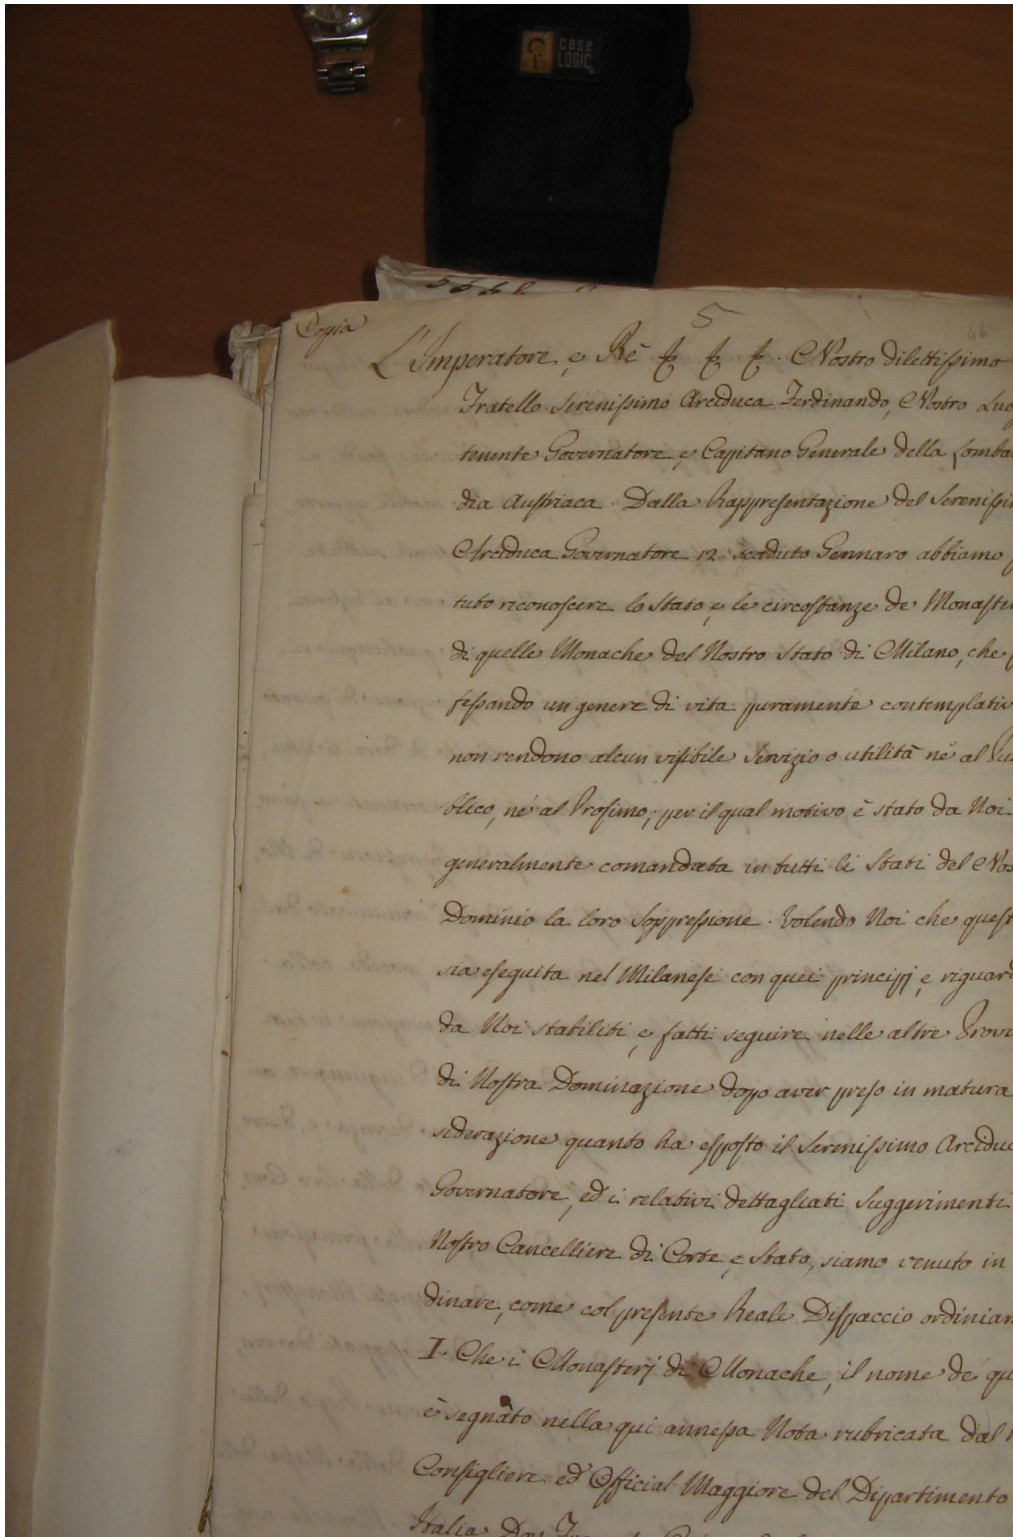 case
LOGIC
5
46
Copia
L'Imperatore, e Rè &c &c &c. Nostro dilettissimo
Fratello Serenissimo Arciduca Ferdinando, Nostro Luo
tenente Governatore, e Capitano Generale della Lomba
dia Austriaca. Dalla Rappresentazione del Serenissi
Arciduca Governatore 12 scaduto Gennaro abbiamo
tuto riconoscere lo Stato, e le circostanze de' Monaste
di quelle Monache del Nostro Stato di Milano, che
fessando un genere di vita puramente contemplativ
non rendono alcun visibile Servizio o utilità nè al Pu
blico, nè al Prossimo; per il qual motivo è stato da Noi
generalmente comandata in tutti li Stati del Nos
Dominio la loro Soppressione. Volendo Noi che quest
sia eseguita nel Milanese con quei principj, e riguard
da Noi stabiliti, e fatti seguire nelle altre Provi
di Nostra Dominazione dopo aver preso in matura
siderazione quanto ha esposto il Serenissimo Arcidu
Governatore, ed i relativi dettagliati Suggerimenti
Nostro Cancelliere di Corte, e Stato, siamo venuto in
dinare, come col presente Reale Dispaccio ordiniam
I. Che i Monasterj di Monache, il nome de' qu
è segnato nella qui annessa Nota rubricata dal
Consigliere ed Official Maggiore del Dipartimento
Italia Don